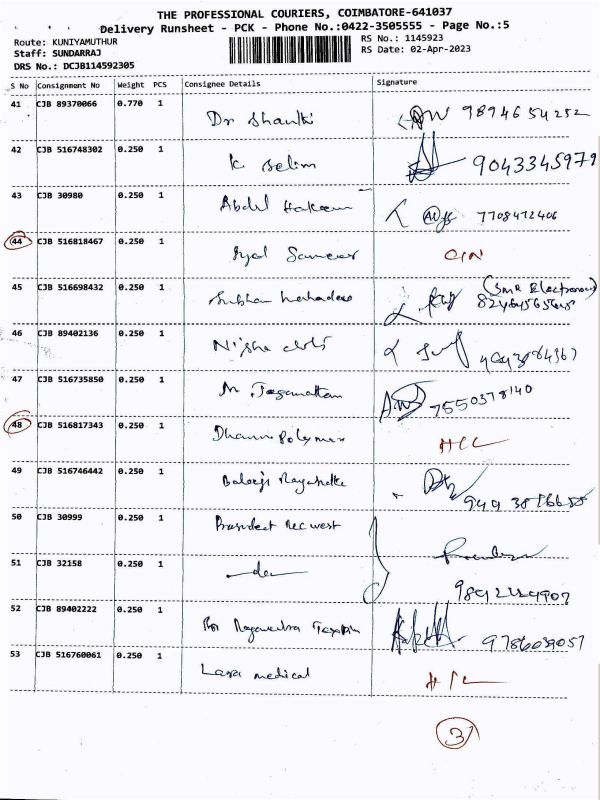 THE PROFESSIONAL COURIERS, COIMBATORE-641037
Delivery Runsheet - PCK - Phone No.:0422-3505555 - Page No.:5
Route: KUNIYAMUTHUR
RS No.: 1145923
Staff: SUNDARRAJ
RS Date: 02-Apr-2023
DRS No.: DCJB114592305
S No Consignment No Weight PCS Consignee Details Signature
41 CJB 89370066 0.770 1 Dr Shanthi 9894654252
42 CJB 516748302 0.250 1 K. Selim 9043345979
43 CJB 30980 0.250 1 Abdul Hakeem 7708472406
44 CJB 516818467 0.250 1 Syed Sameer
45 CJB 516698432 0.250 1 (SMR Electronics)
46 CJB 89402136 0.250 1 Nisha
47 CJB 516735850 0.250 1 7550378140
48 CJB 516817343 0.250 1 Polymer
49 CJB 516746442 0.250 1 Balaji
50 CJB 30999 0.250 1 Rec west
51 CJB 32158 0.250 1 do
52 CJB 89402222 0.250 1 9786039057
53 CJB 516760061 0.250 1 Lara medical
3